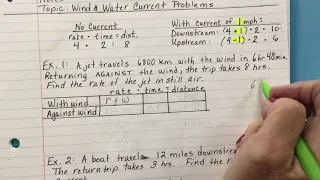 Topic: Wind & Water Current Problems
No Current
rate · time = dist.
4 · 2 = 8
With Current of 1mph:
Downstream: (4+1) · 2 = 10
Upstream: (4-1) · 2 = 6
Ex. 1: A jet travels 6800 km with the wind in 6hr 48min
Returning AGAINST the wind, the trip takes 8 hrs.
Find the rate of the jet in still air.
rate · time = distance
6
With wind r + w
Against wind
Ex. 2: A boat travels 12 miles downstre
The return trip takes 3 hrs. Find the r